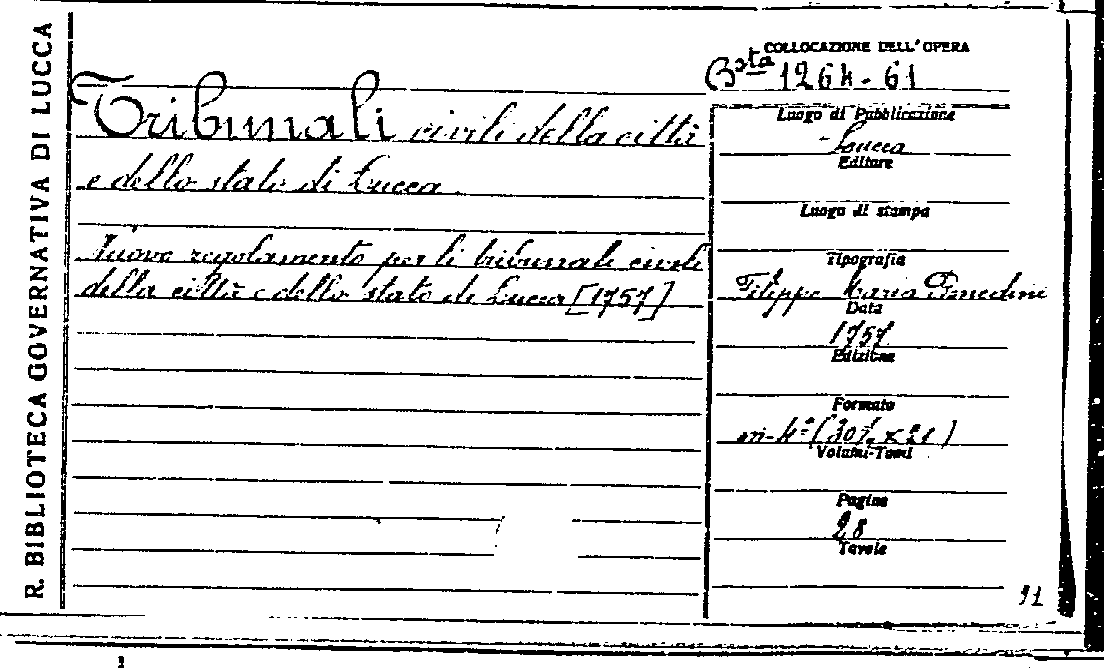 R. BIBLIOTECA GOVERNATIVA DI LUCCA
Tribunali civili della città
e dello stato di Lucca.
Nuovo regolamento per li tribunali civili
della città e dello stato di Lucca [1757]
COLLOCAZIONE DELL'OPERA
Bsta 1264-61
Luogo di Pubblicazione
Lucca
Editore
Luogo di stampa
Tipografia
Filippo Maria Benedini
Data
1757
Edizione
Formato
in-4º (30 x 21)
Volumi-Tomi
Pagine
28
Tavole
91